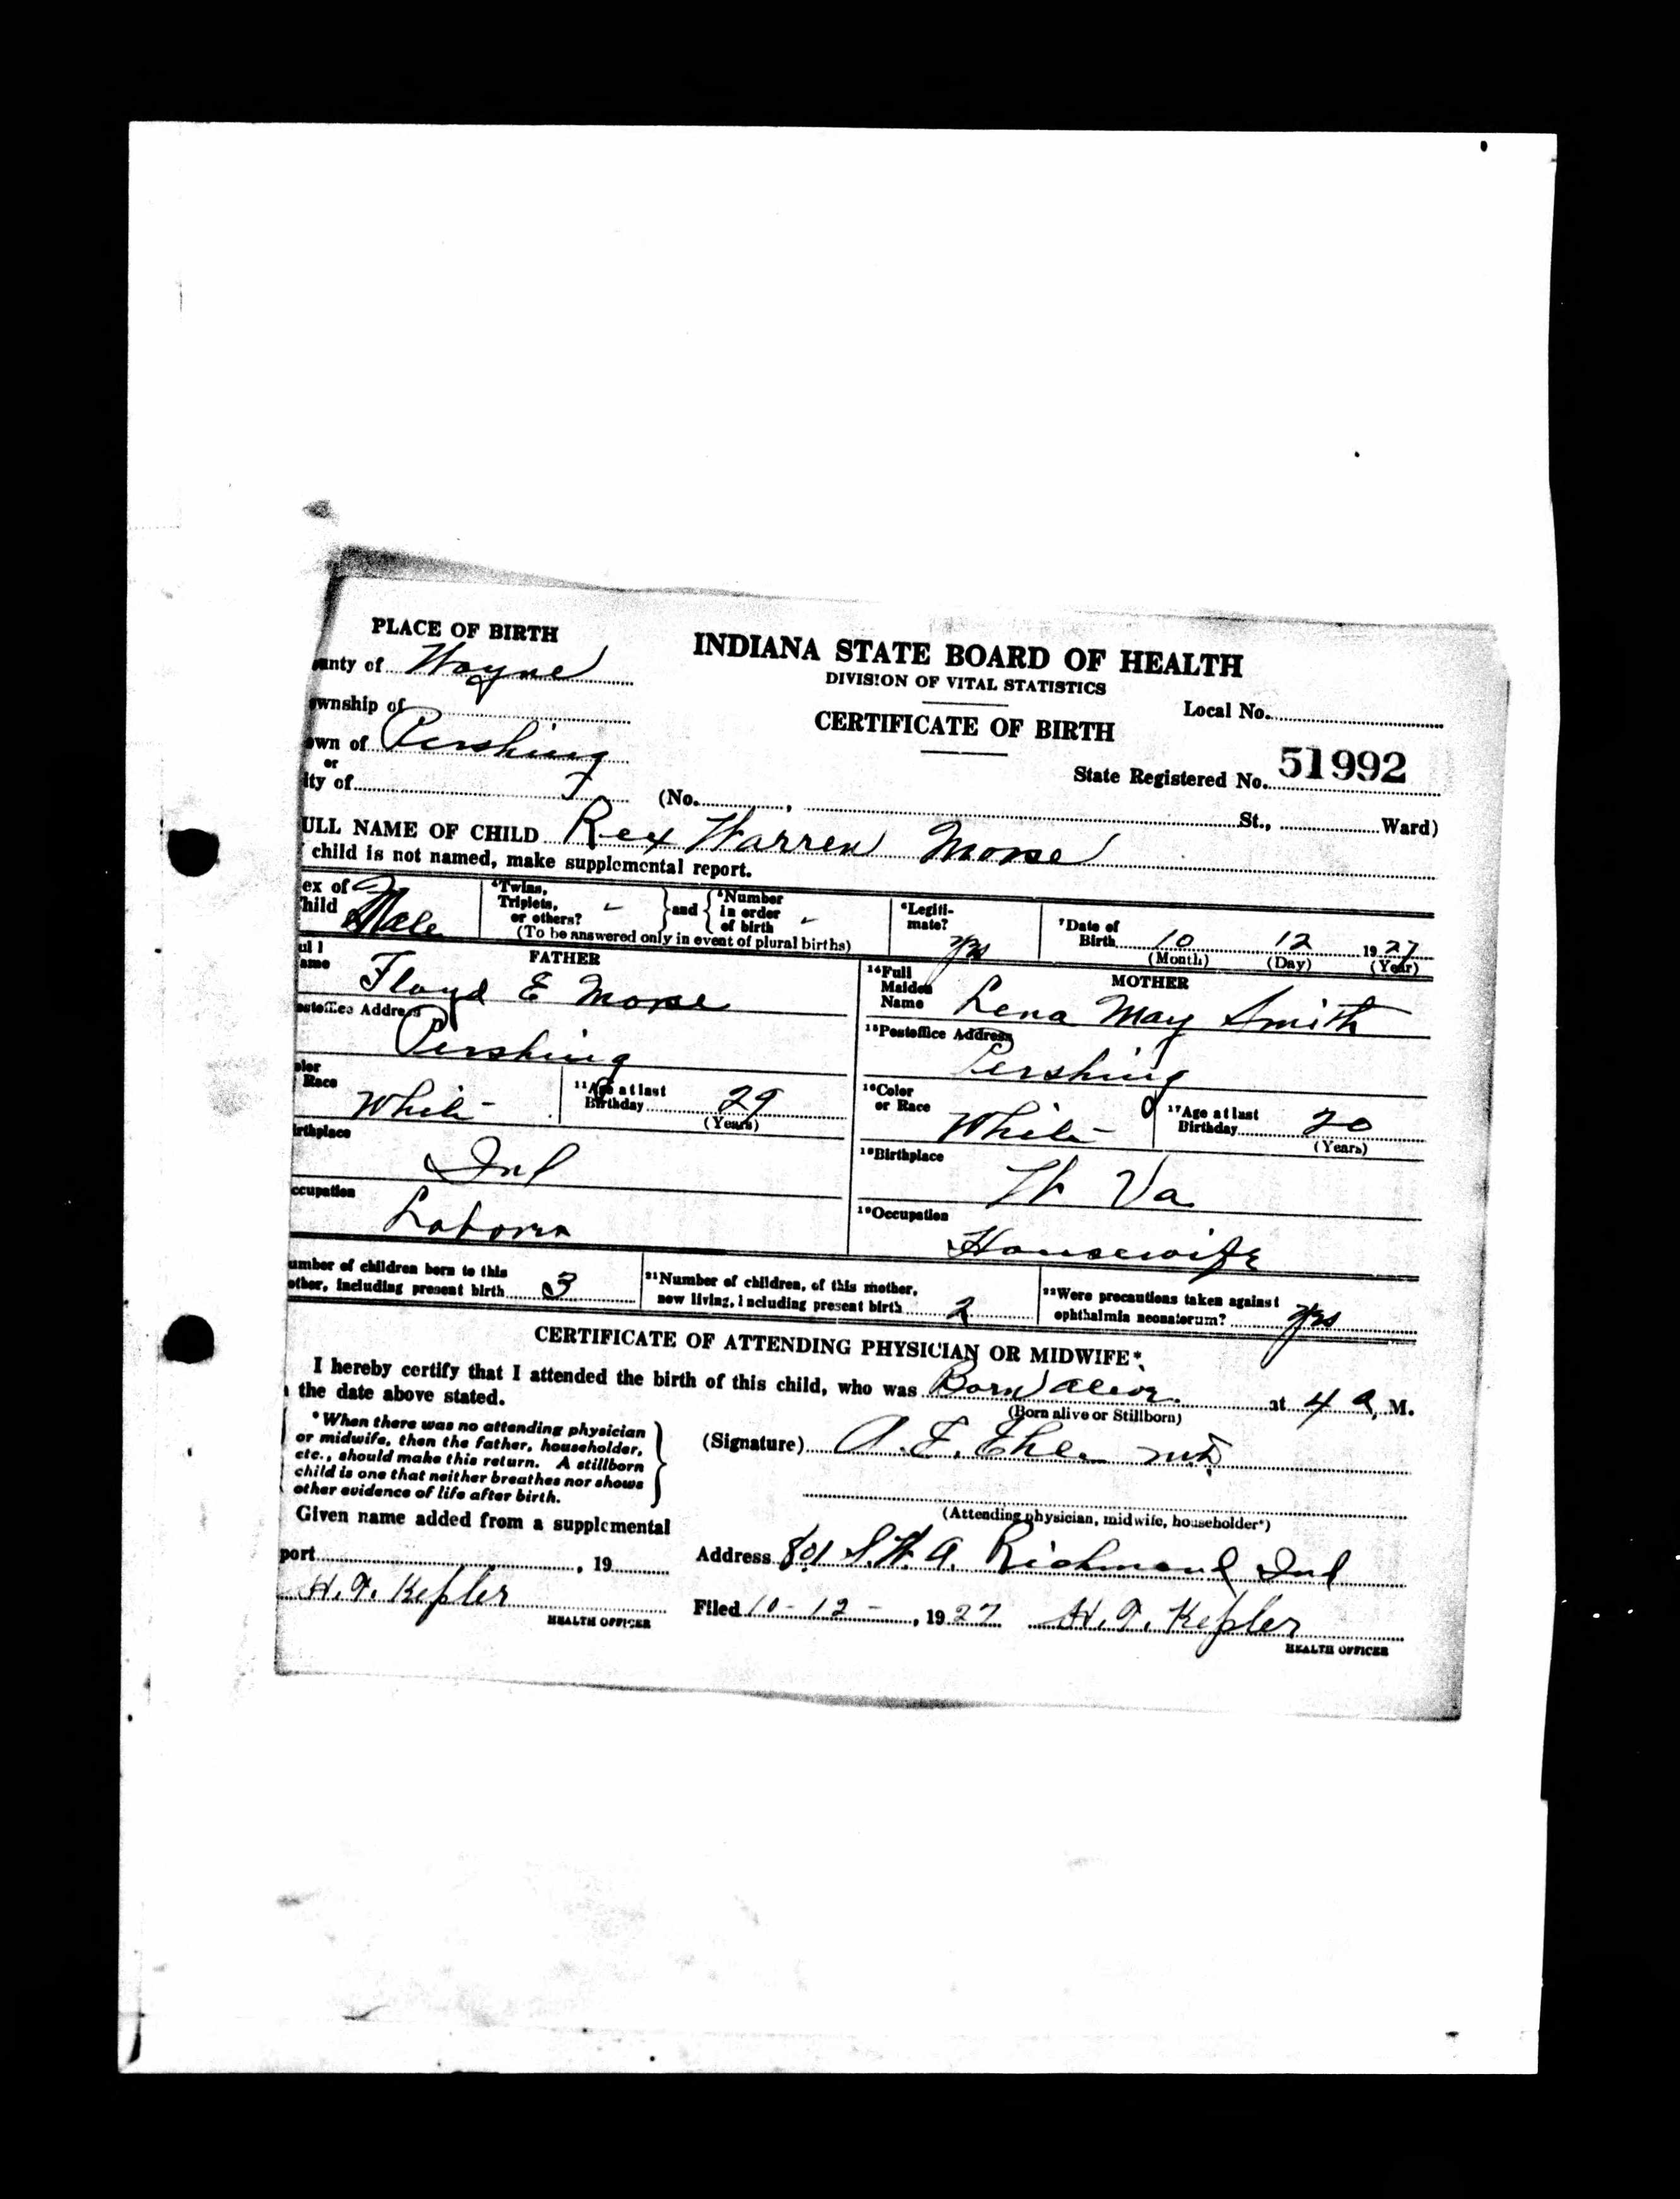 PLACE OF BIRTH
INDIANA STATE BOARD OF HEALTH
DIVISION OF VITAL STATISTICS
CERTIFICATE OF BIRTH
ounty of Wayne
ownship of
own of Pershing
or
ity of
Local No.
State Registered No. 51992
(No. , St., Ward)
ULL NAME OF CHILD Rex Warren Morse
child is not named, make supplemental report.
ex of
hild Male
4Twins, Triplets, or others? - } and { 5Number in order of birth -
(To be answered only in event of plural births)
6Legiti-mate? yes
7Date of Birth 10 12 1927
(Month) (Day) (Year)
FATHER
ull
ame Floyd E Morse
ostoffice Address
Pershing
olor
Race White
11Age at last Birthday 29
(Years)
irthplace
Ind
ccupation
Laborer
MOTHER
14Full Maiden Name Lena May Smith
15Postoffice Address
Pershing
16Color or Race White
17Age at last Birthday 20
(Years)
18Birthplace
W Va
19Occupation
Housewife
umber of children born to this
other, including present birth 3
21Number of children, of this mother,
now living, including present birth 2
22Were precautions taken against
ophthalmia neonatorum? yes
CERTIFICATE OF ATTENDING PHYSICIAN OR MIDWIFE*
I hereby certify that I attended the birth of this child, who was Born alive at 4 a. M.
the date above stated.
(Born alive or Stillborn)
*When there was no attending physician
or midwife, then the father, householder,
etc., should make this return. A stillborn
child is one that neither breathes nor shows
other evidence of life after birth.
(Signature) A. F. MD
(Attending physician, midwife, householder*)
Given name added from a supplemental
port , 19
H. F. Kepler
HEALTH OFFICER
Address 801 S. W. A. Richmond Ind
Filed 10-12-, 1927 H. F. Kepler
HEALTH OFFICER